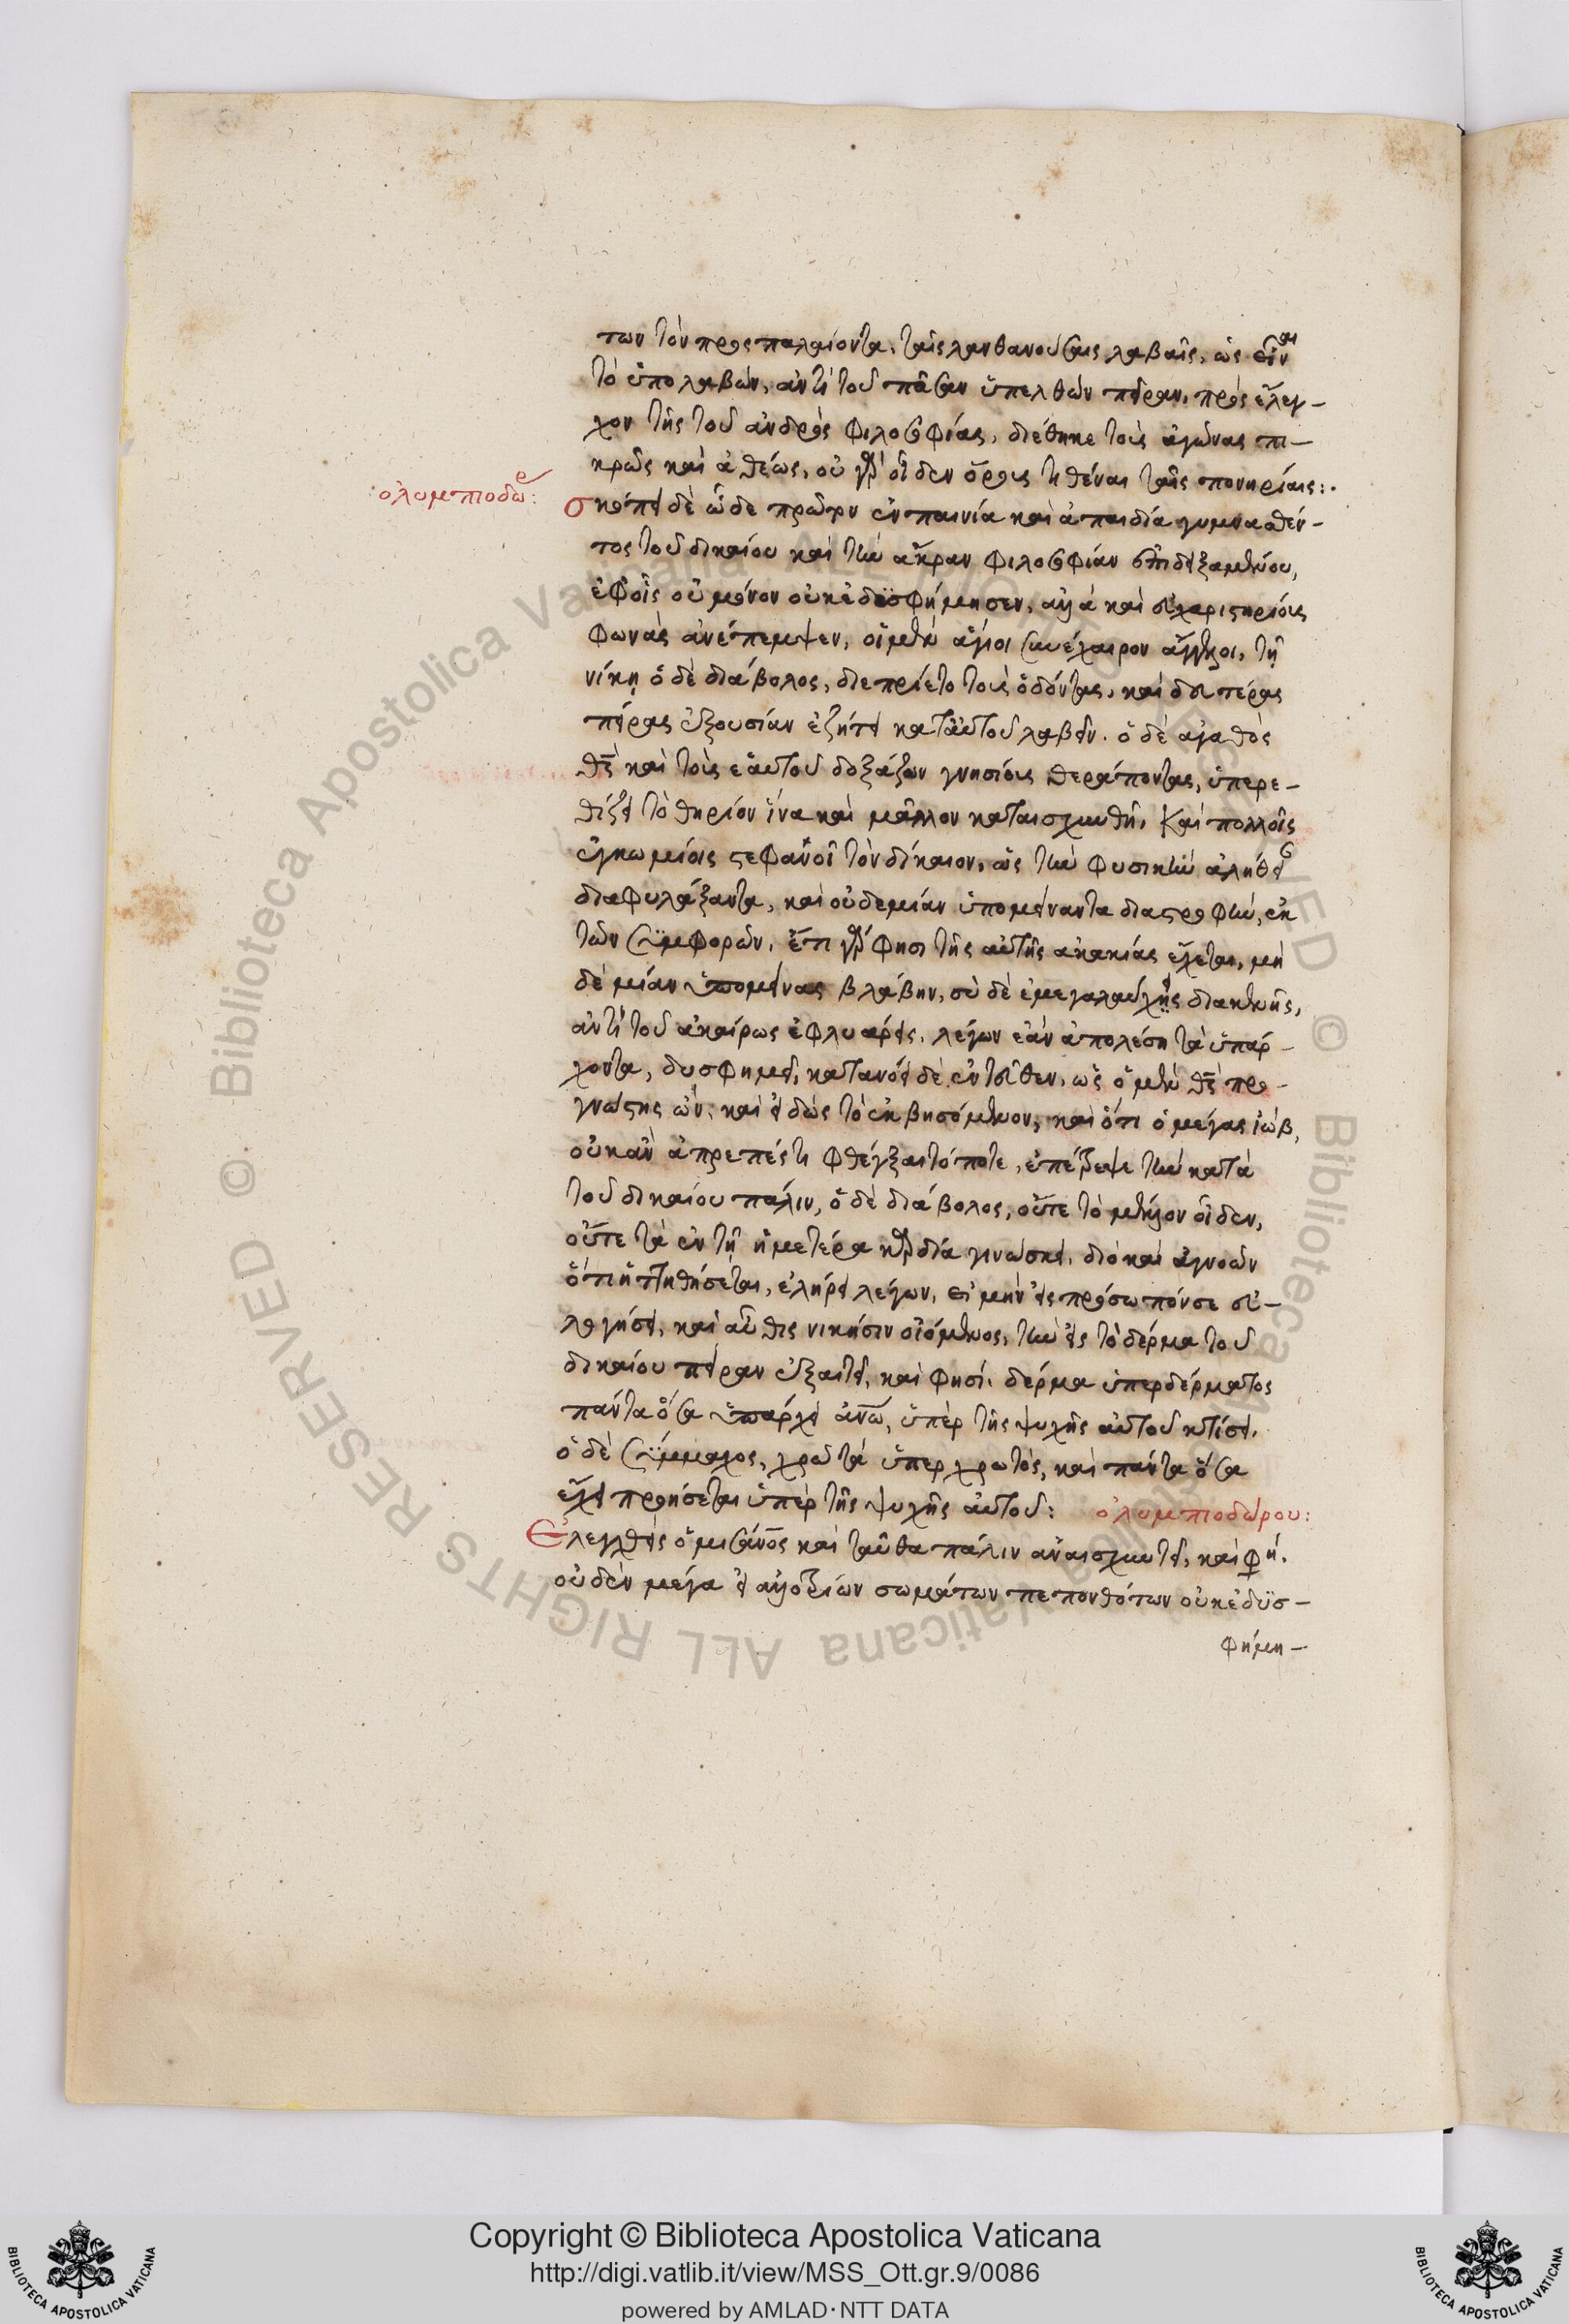 των τὸν προσπαλαίοντα, ταῖς λανθανούσαις λαβαῖς, ὡς εἶναι
τὸ ὑπολαβὼν, ἀντὶ τοῦ πᾶσαν ὑπελθὼν πεῖραν, πρὸς ἔλεγ-
χον τῆς τοῦ ἀνδρὸς φιλοσοφίας, διέθηκε τοὺς ἀγῶνας πι-
κρῶς καὶ ἀθέως, οὐ γὰρ οἶδεν ὅρους τιθέναι ταῖς πονηρίαις:
ὀλυμπιοδώρ:
σκόπει δὲ ὧδε πρῶτον ἐν πενία καὶ ἀπαιδία γυμνασθέν-
τος τοῦ δικαίου καὶ τὴν ἄκραν φιλοσοφίαν ἐπιδειξαμένου,
ἐφ οἷς οὐ μόνον οὐκ ἐδυσφήμησεν, ἀλλὰ καὶ εὐχαριστηρίους
φωνὰς ἀνέπεμψεν, οἱ μὲν ἅγιοι συνέχαιρον ἄγγελοι, τῇ
νίκῃ ὁ δὲ διάβολος, διεπρίετο τοὺς ὀδόντας, καὶ δευτέρας
πείρας ἐξουσίαν ἐζήτει κατ αὐτοῦ λαβεῖν. ὁ δὲ ἀγαθὸς
θς καὶ τοὺς ἑαυτοῦ δοξάζων γνησίους θεράποντας, ὑπερε-
θίζει τὸ θηρίον ἵνα καὶ μᾶλλον καταισχυνθῇ, καὶ πολλοῖς
ἐγκωμίοις στεφανοῖ τὸν δίκαιον, ὡς τὴν φυσικὴν ἀλήθειαν
διαφυλάξαντα, καὶ οὐδεμίαν ὑπομείναντα διαστροφὴν, ἐκ
τῶν συμφορῶν. ἔτι γάρ φησι τῆς αὐτῆς ἀκακίας ἔχεται, μη
δὲ μίαν ὑπομείνας βλάβην, σὺ δὲ ἐμεγαλαύχεις διακενῆς,
ἀντὶ τοῦ ἀκαίρως ἐφλυάρεις, λέγων ἐὰν ἀπολέσῃ τὰ ὑπάρ-
χοντα, δυσφημεῖ, κατανόει δὲ ἐντεῦθεν, ὡς ὁ μὲν θς προ-
γνώστης ὢν, καὶ εἰδὼς τὸ ἐκβησόμενον, καὶ ὅτι ὁ μέγας ἰὼβ,
οὐκ ἂν ἀπρεπές τι φθέγξαιτό ποτε, ἐπέτρεψε τὴν κατὰ
τοῦ δικαίου πάλιν, ὁ δὲ διάβολος, οὔτε τὸ μέλλον οἶδεν,
οὔτε τὰ ἐν τῇ ἡμετέρα καρδία γινώσκει, διὸ καὶ ἀγνοῶν
ὅτι ἡττηθήσεται, ἐλήρει λέγων, εἰ μὴν εἰς πρόσωπόν σε εὐ-
λογήσει, καὶ αὖθις νικήσειν οἰόμενος, τὴν εἰς τὸ δέρμα τοῦ
δικαίου πεῖραν ἐξαιτεῖ, καὶ φησί. δέρμα ὑπερ δέρματος
πάντα ὅσα ὑπάρχει ἀνω, ὑπὲρ τῆς ψυχῆς αὐτοῦ κτίσει.
ὁ δὲ σύμμαχος, χρῶτα ὑπερ χρωτὸς, καὶ πάντα ὅσα
ἔχει προήσεται ὑπὲρ τῆς ψυχῆς αὐτοῦ: ὀλυμπιοδώρου:
Ἐλεγχθεὶς ὁ μισάνος καὶ ταῦθα πάλιν ἀναισχυντεῖ, καὶ φη.
οὐδὲν μέγα εἰ ἀλλοτρίων σωμάτων πεπονθότων οὐκ ἐδυσ-
φήμη-
Copyright © Biblioteca Apostolica Vaticana
http://digi.vatlib.it/view/MSS_Ott.gr.9/0086
powered by AMLAD·NTT DATA